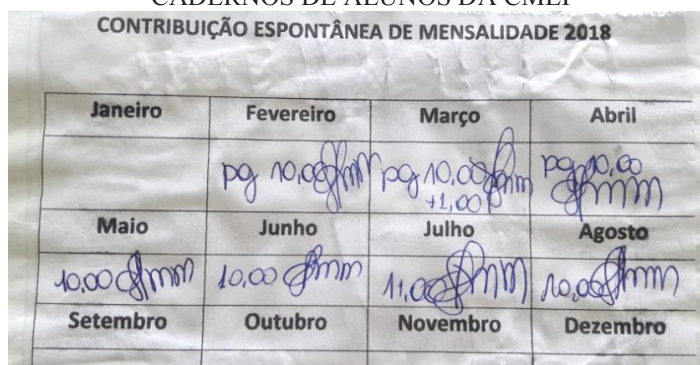 CADERNOS DE ALUNOS DA CMEI
CONTRIBUIÇÃO ESPONTÂNEA DE MENSALIDADE 2018
Janeiro Fevereiro Março Abril
pg 10,00 pg 10,00 pg 10,00
+1,00
Maio Junho Julho Agosto
10,00 10,00 11,00 10,00
Setembro Outubro Novembro Dezembro